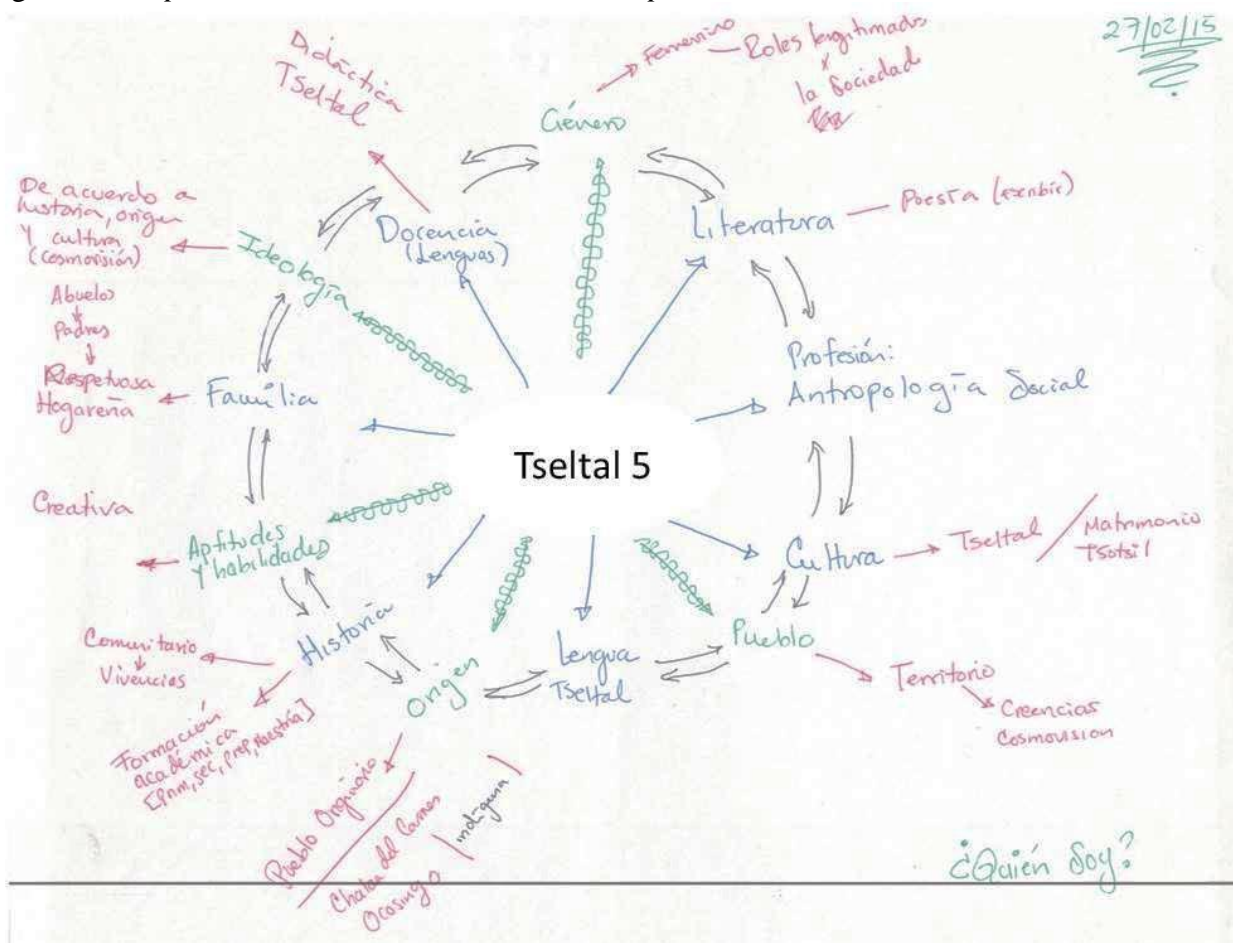 27/02/15
Didáctica
Tseltal
Género
Femenino — Roles legitimados
x
la Sociedad
De acuerdo a
historia, origen
y cultura
(cosmovisión)
Ideología
Docencia
(Lenguas)
Literatura
Poesía (escribir)
Abuelos
Padres
Respetuosa
Hogareña
Familia
Profesión:
Antropología Social
Tseltal 5
Creativa
Aptitudes
y habilidades
Cultura
Tseltal / Matrimonio
Tsotsil
Comunitario
Vivencias
Historia
Formación
académica
[prim, sec, prep, maestría]
Origen
Lengua
Tseltal
Pueblo
Territorio
Creencias
Cosmovision
Pueblo Originario
Ocosingo
indígena
¿Quién Soy?